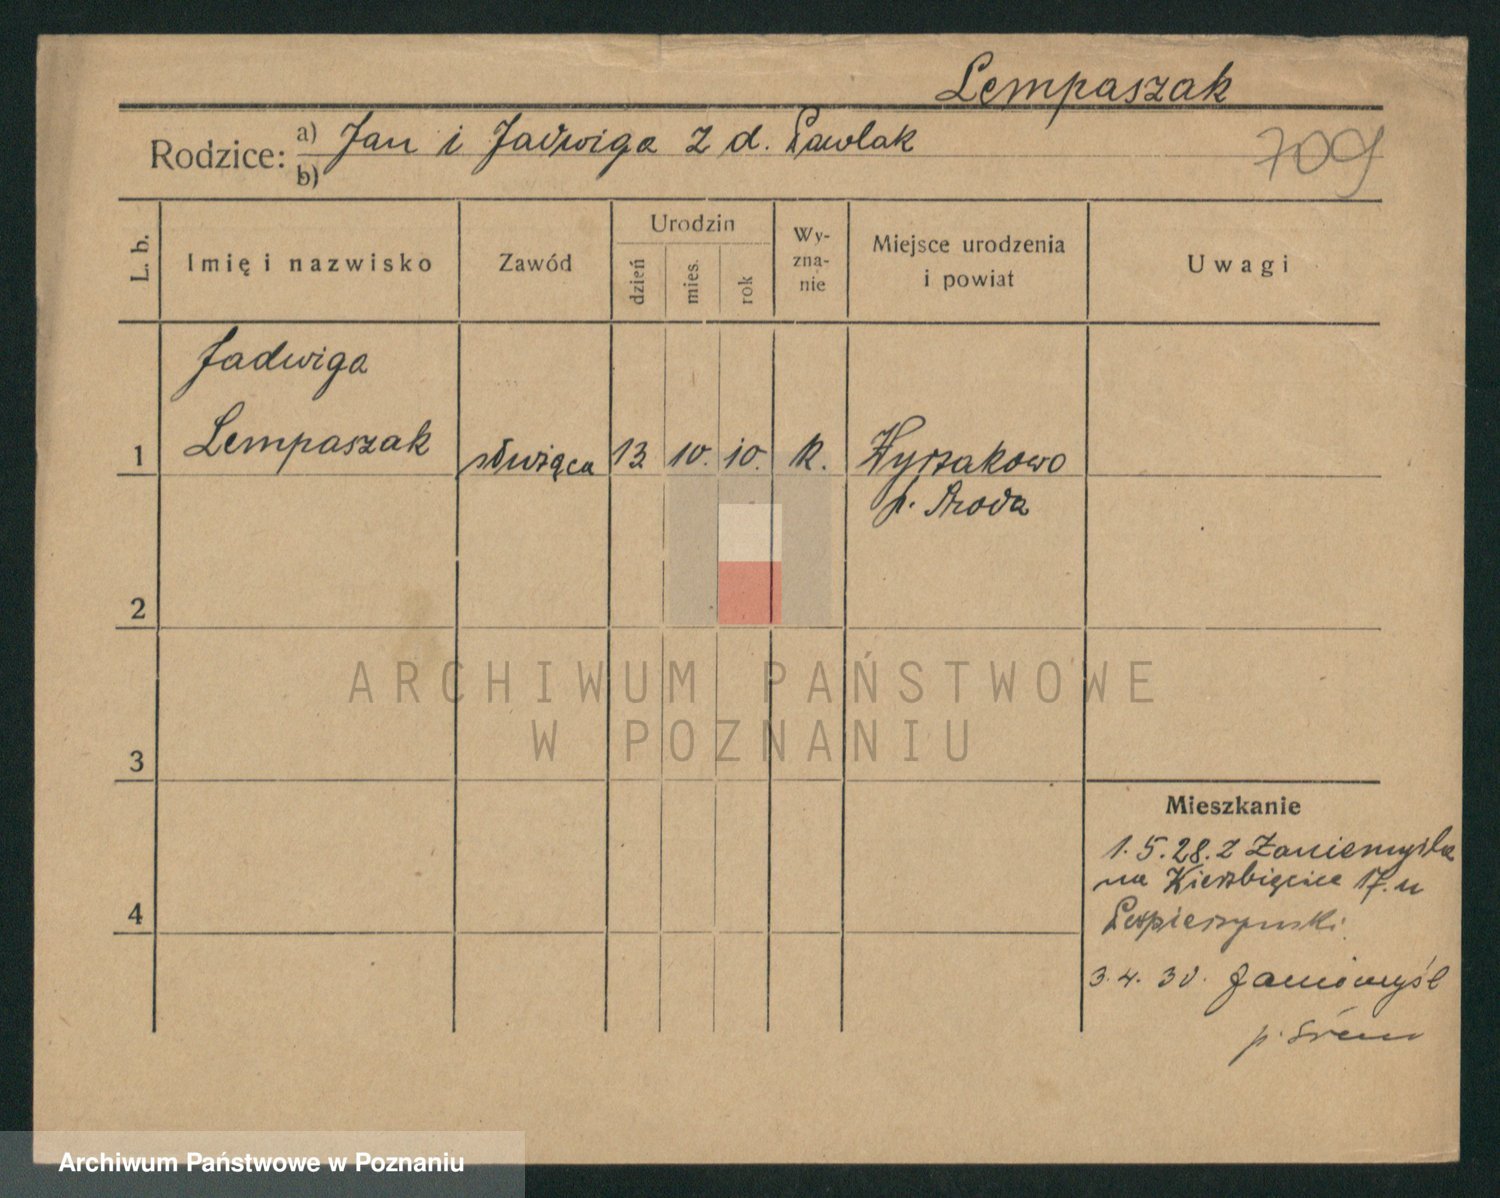 Lempaszak
Rodzice: a) Jan i Jadwiga z d. Pawlak
b)
709
L. b.
Imię i nazwisko
Zawód
Urodzin
dzień
mies.
rok
Wy-
zna-
nie
Miejsce urodzenia
i powiat
Uwagi
Jadwiga
1 Lempaszak służąca 13. 10. 10. k. Wyszakowo
p. Środa
2
3
4
ARCHIWUM PAŃSTWOWE
W POZNANIU
Mieszkanie
1. 5. 28. z Zaniemyśla
na Wierzbięcice 17. u
3. 4. 30. Zaniemyśl
p. Śrem
Archiwum Państwowe w Poznaniu